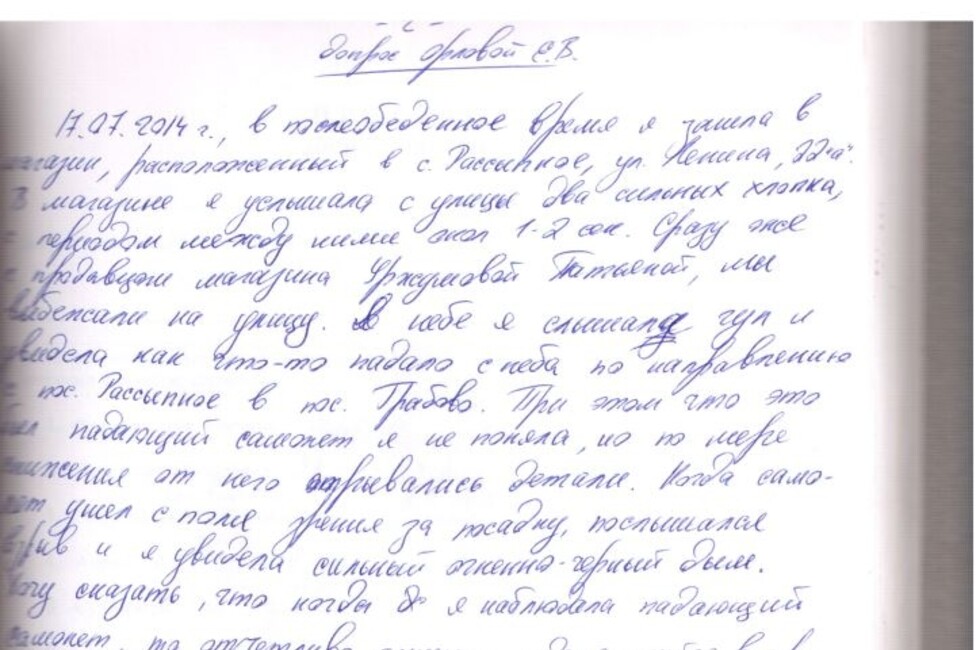 допрос Орловой Е.В.
17.07.2014 г., в послеобеденное время я зашла в
магазин, расположенный в с. Рассыпное, ул. Ленина, 22"а".
В магазине я услышала с улицы два сильных хлопка,
с периодом между ними окол 1-2 сек. Сразу же
с продавцом магазина Уржумовой Татьяной, мы
выбежали на улицу. В небе я слышала гул и
увидела как что-то падало с неба по направлению
с пос. Рассыпное в пос. Грабово. При этом что это
был падающий самолет я не поняла, но по мере
снижения от него отрывались детали. Когда само-
лет ушел с поля зрения за посадку, послышался
взрыв и я увидела сильный огненно-черный дым.
Хочу сказать, что когда я наблюдала падающий
самолет, то отчетливо